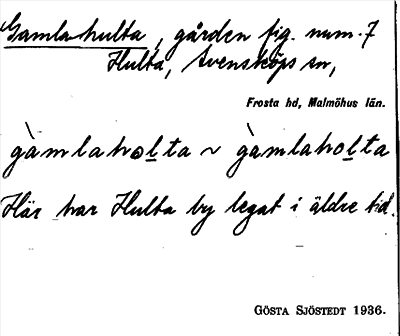 Gamlahulta, gården fig. num. 7
Hulta, Svensköps sn,
Frosta hd, Malmöhus län.
gàmlahol̲ta ~ gàmlahol̲ta
Här har Hulta by legat i äldre tid.
GÖSTA SJÖSTEDT 1936.